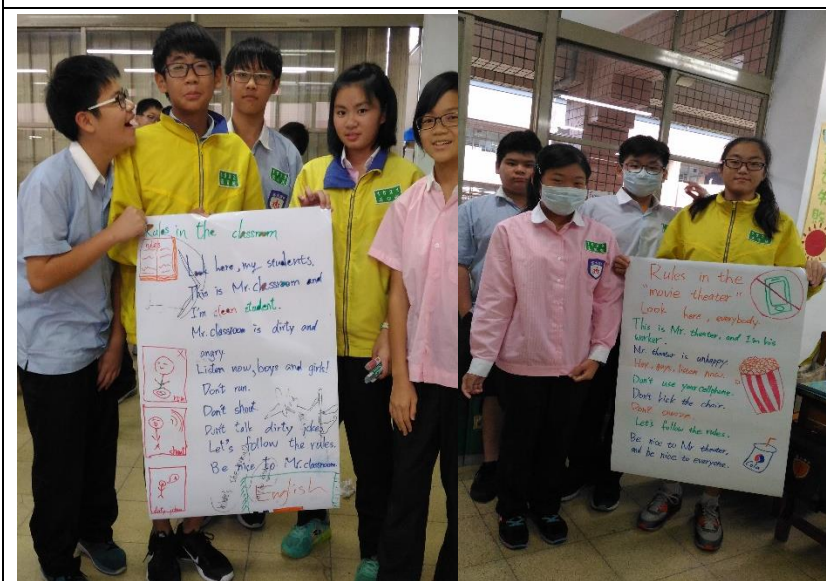 Rules in the classroom
rules
Look here, my students.
This is Mr. classroom and
I'm clean student.
Mr. classroom is dirty and
angry.
Listen now, boys and girls!
Don't run.
Don't shout
Don't talk dirty joke
Let's follow the rules.
Be nice to Mr. classroom.
run
shout
English
Rules in the
"movie theater"
Look here, everybody.
This is Mr. theater, and I'm his
worker.
Mr. theater is unhappy.
guys, listen now.
Don't use your cellphone.
Don't kick the chair.
Don't
Let's follow the rules.
Be nice to Mr theater,
and be nice to everyone.
Cola